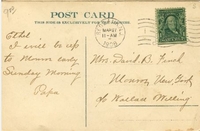 POST CARD
THIS SIDE IS EXCLUSIVELY FOR THE ADDRESS
Ethel
I will be up
to Monroe early
Sunday Morning
Papa
Mrs. David B. Finch
Monroe, New York
c/o Wallace Milling